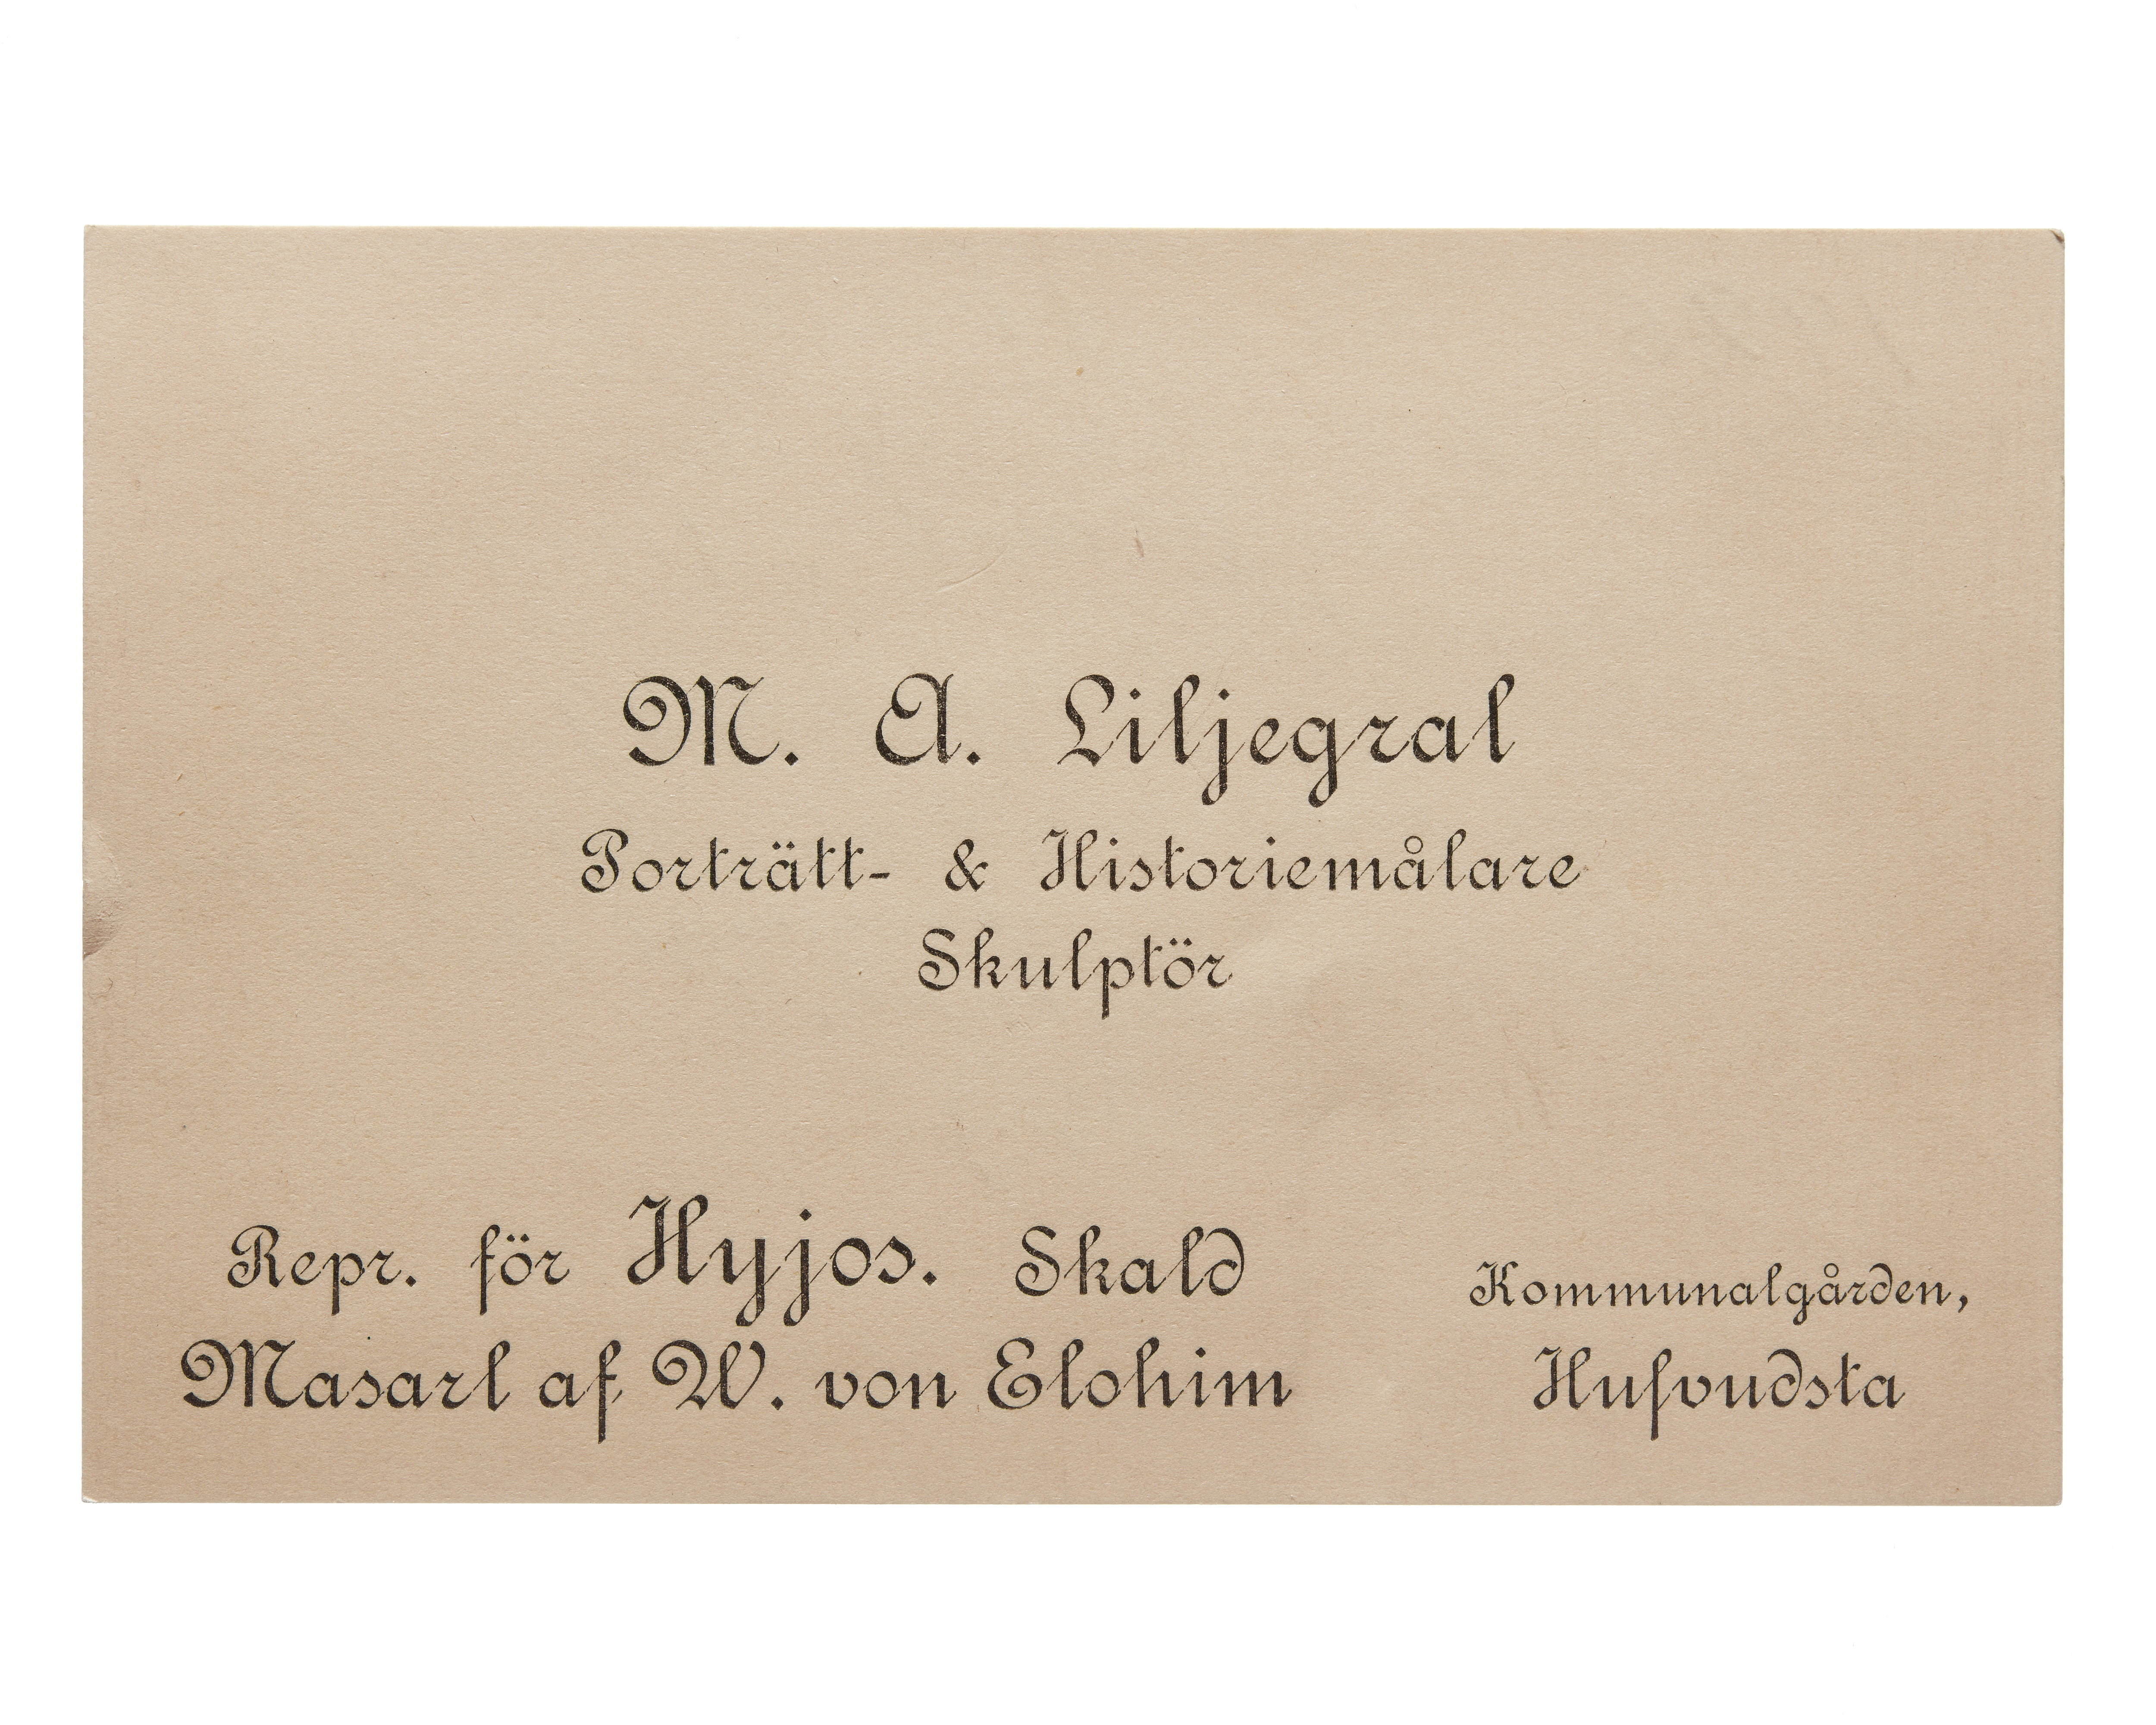 M. A. Liljegral
Porträtt- & Historiemålare
Skulptör
Repr. för Hyjos. Skald
Masarl af W. von Elohim
Kommunalgården,
Hufvudsta